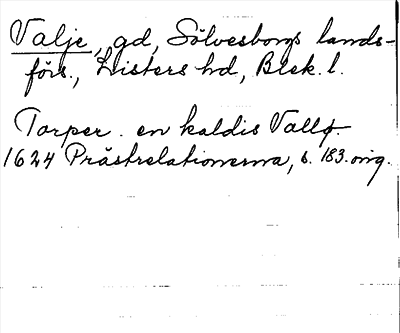 Valje, gd, Sölvesborgs lands-
förs., Listers hd, Blek. l.
Torper. en kaldis Vallø
1624 Prästrelationerna, s. 183. orig.